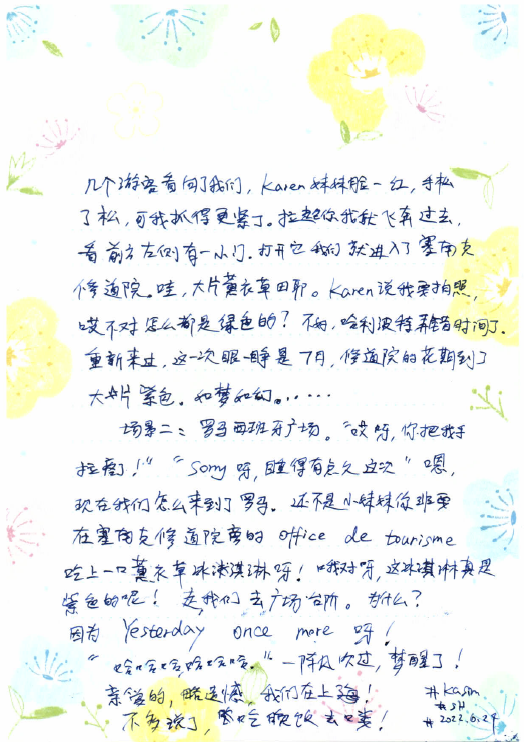 几个游客看向了我们，Karen妹妹脸一红，手松
了松，可我抓得更紧了。拉起你我就飞奔过去，
看前方左侧有一小门．打开它我们就进入了塞南克
修道院。哇，大片薰衣草田耶。Karen说我要拍照，
哎不对怎么都是绿色的？不好，哈利波特弄错时间了．
重新来过，这一次眼一睁是7月，修道院的花期到了
大片紫色。如梦如幻。……
场景二：罗马西班牙广场。“哎呀，你把我手
拉痛了！”“Sorry呀，睡得有点久这次”嗯，
现在我们怎么来到了罗马．还不是小妹妹你非要
在塞南克修道院旁的 office de tourisme
吃上一口薰衣草冰淇淋呀！哦对呀，这冰淇淋真是
紫色的呢！走我们去广场台阶。为什么？
因为 Yesterday once more 呀！
“哈哈哈，哈哈哈．”一阵风吹过，梦醒了！
亲爱的，略遗憾，我们在上海！
不多说了，吃晚饭去口类！
#Karen
#SH
#2022.6.24